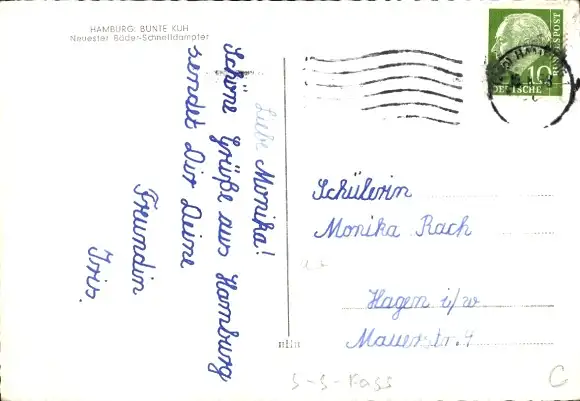 HAMBURG: BUNTE KUH
Neuester Bäder-Schnelldampfer
Liebe Monika!
Schöne Grüße aus Hamburg
sendet Dir Deine
Freundin
Iris.
10
BUNDESPOST
DEUTSCHE
Schülerin
Monika Rach
Hagen i/w
Mauerstr. 4
S-S-Kass
C